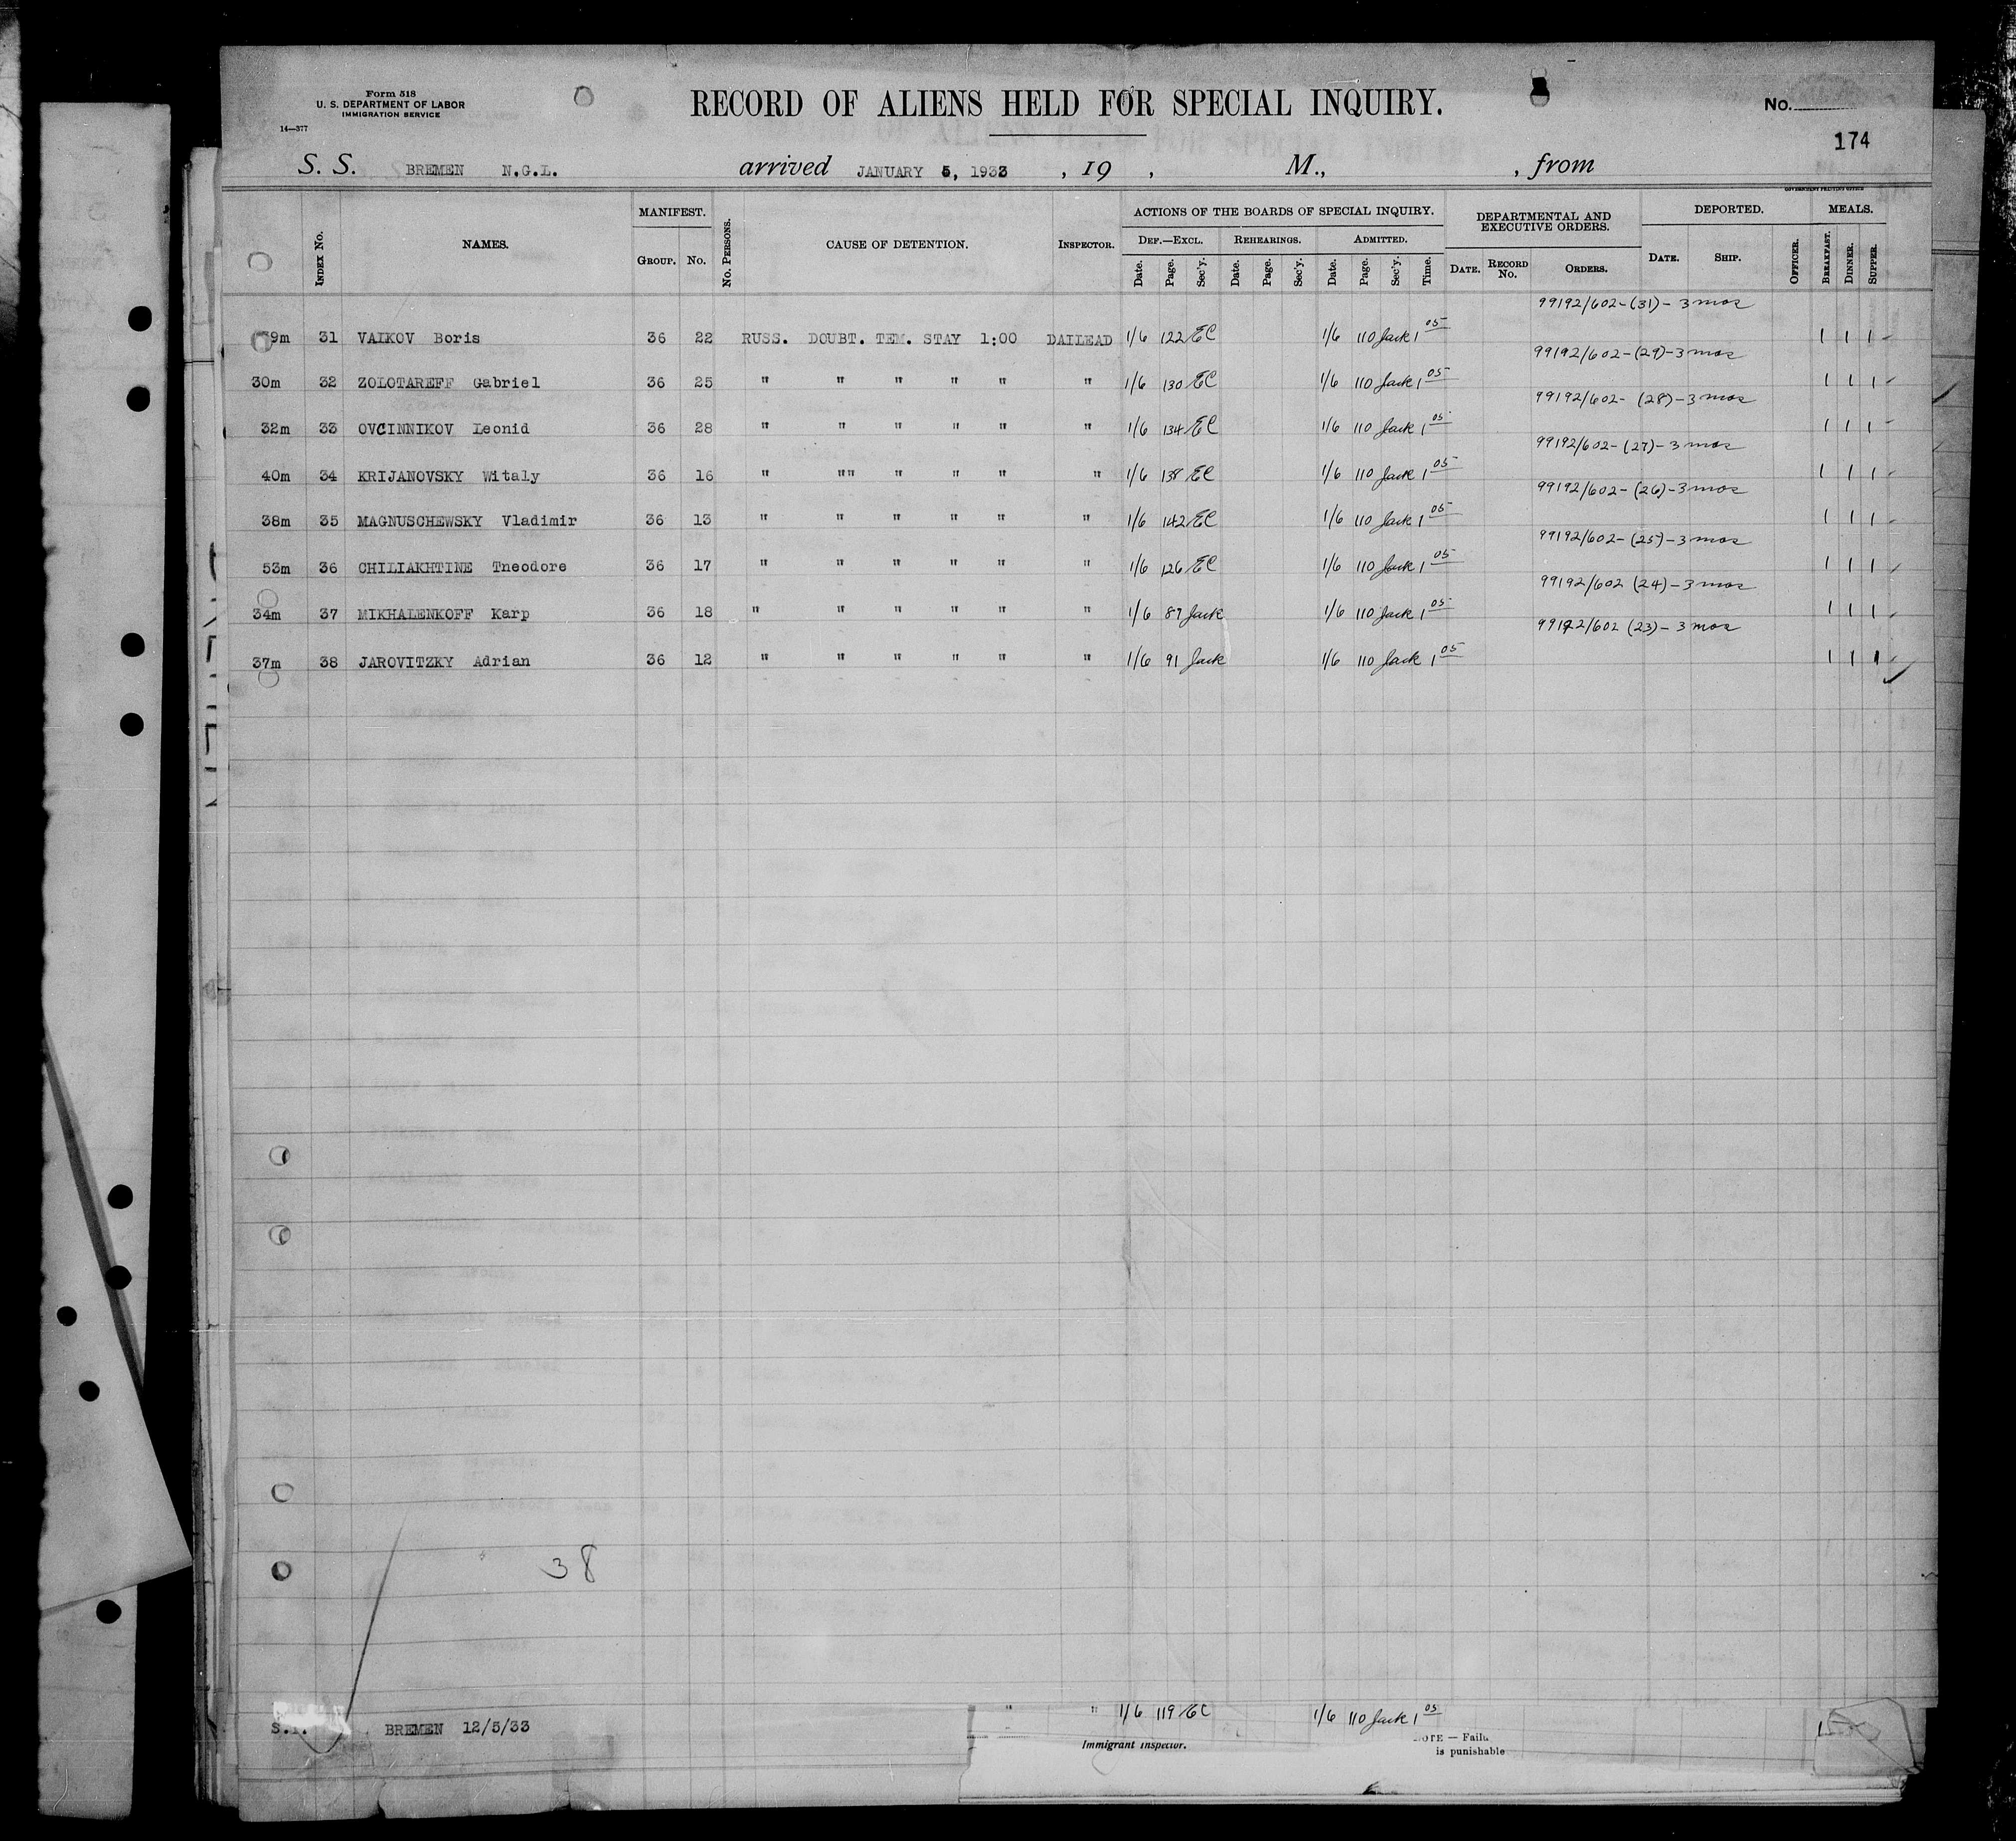 Form 518
U. S. DEPARTMENT OF LABOR
IMMIGRATION SERVICE
14—377
RECORD OF ALIENS HELD FOR SPECIAL INQUIRY.
No.
174
S. S. BREMEN N.G.L. arrived JANUARY 5, 1933 , 19 , M., , from
GOVERNMENT PRINTING OFFICE
INDEX No. NAMES. MANIFEST. GROUP. No. No. PERSONS. CAUSE OF DETENTION. INSPECTOR. ACTIONS OF THE BOARDS OF SPECIAL INQUIRY. DEF.—EXCL. Date. Page. Sec'y. REHEARINGS. Date. Page. Sec'y. ADMITTED. Date. Page. Sec'y. Time. DEPARTMENTAL AND EXECUTIVE ORDERS. DATE. RECORD No. ORDERS. DEPORTED. DATE. SHIP. OFFICER. MEALS. BREAKFAST. DINNER. SUPPER.
99192/602-(31)- 3 mos
9m 31 VAIKOV Boris 36 22 RUSS. DOUBT. TEM. STAY 1:00 DAILEAD 1/6 122 EC 1/6 110 Jack 1 05 1 1 1
99192/602-(29)-3 mos
30m 32 ZOLOTAREFF Gabriel 36 25 " " " " " " 1/6 130 EC 1/6 110 Jack 1 05 1 1 1
99192/602- (28)-3 mos
32m 33 OVCINNIKOV Leonid 36 28 " " " " " " 1/6 134 EC 1/6 110 Jack 1 05 1 1 1
99192/602-(27)-3 mos
40m 34 KRIJANOVSKY Witaly 36 16 " "" " " " " 1/6 138 EC 1/6 110 Jack 1 05 1 1 1
99192/602-(26)-3 mos
38m 35 MAGNUSCHEWSKY Vladimir 36 13 " " " " " " 1/6 142 EC 1/6 110 Jack 1 05 1 1 1
99192/602-(25)-3 mos
53m 36 CHILIAKHTINE Tneodore 36 17 " " " " " " 1/6 126 EC 1/6 110 Jack 1 05 1 1 1
99192/602 (24)-3 mos
34m 37 MIKHALENKOFF Karp 36 18 " " " " " " 1/6 87 Jack 1/6 110 Jack 1 05 1 1 1
99192/602 (23)- 3 mos
37m 38 JAROVITZKY Adrian 36 12 " " " " " " 1/6 91 Jack 1/6 110 Jack 1 05 1 1 1
38
" " 1/6 119 EC 1/6 110 Jack 1 05 1
S.I. BREMEN 12/5/33
Immigrant Inspector.
NOTE — Failu
is punishable